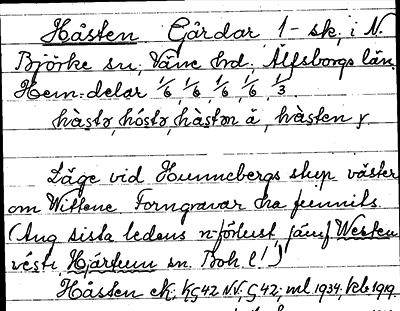 Håsten Gårdar 1-sk, i N.
Björke sn, Väne hrd. Älfsborgs län.
Hem: delar 1/6, 1/6, 1/6, 1/6, 1/3.
hàstə, hóstə, hàstən å, hàsten
Läge vid Hunnebergs stup väster
om Wittene. Forngravar ha funnits.
(Ang sista ledens n-förlust, jämf Westen
vésti, Hjärtum sn. Boh. l!)
Håsten ek; KG 42 NV. G 42; ml 1934, kcb 1919.